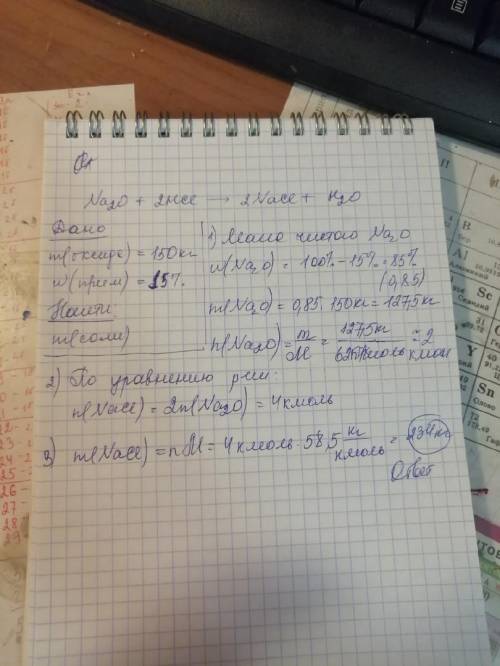 Na₂O + 2HCl → 2NaCl + H₂O
Дано
m(оксида) = 150 кг
w(прим) = 15%
Найти
m(соли)
1) Масса чистого Na₂O
w(Na₂O) = 100% - 15% = 85%
(0,85)
m(Na₂O) = 0,85 · 150 кг = 127,5 кг
n(Na₂O) = m/M = 127,5 кг / 62 кг/кмоль ≈ 2 кмоль
2) По уравнению р-ии:
n(NaCl) = 2n(Na₂O) = 4 кмоль
3) m(NaCl) = nM = 4 кмоль · 58,5 кг/кмоль = 234 кг
Ответ
B
Al
Sc
Y
Sn